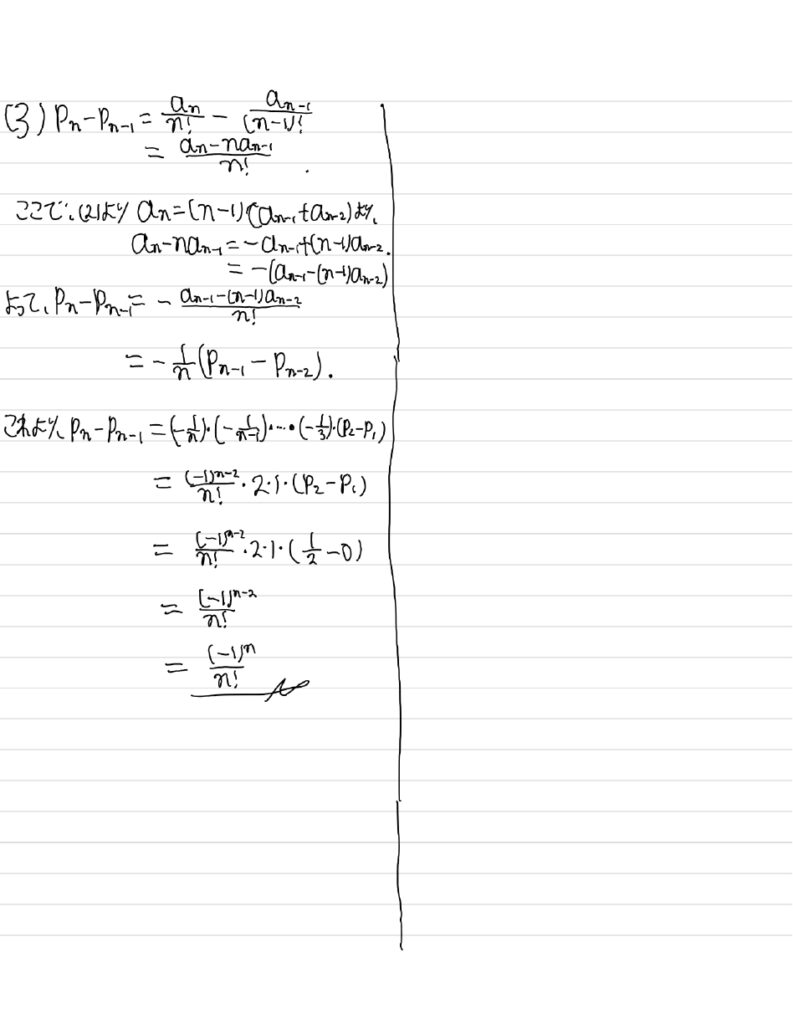 (3) Pn-Pn-1 = an/n! - an-1/(n-1)!
= (an-nan-1)/n!.
ここで、(2)より an=(n-1)(an-1+an-2)より、
an-nan-1=-an-1+(n-1)an-2.
=-(an-1-(n-1)an-2)
よって、Pn-Pn-1=-(an-1-(n-1)an-2)/n!
=-1/n(Pn-1-Pn-2).
これより、Pn-Pn-1=(-1/n)・(-1/(n-1))・…・(-1/3)・(P2-P1)
=(-1)^(n-2)/n!・2・1・(P2-P1)
=(-1)^(n-2)/n!・2・1・(1/2-0)
=(-1)^(n-2)/n!
=(-1)^n/n!